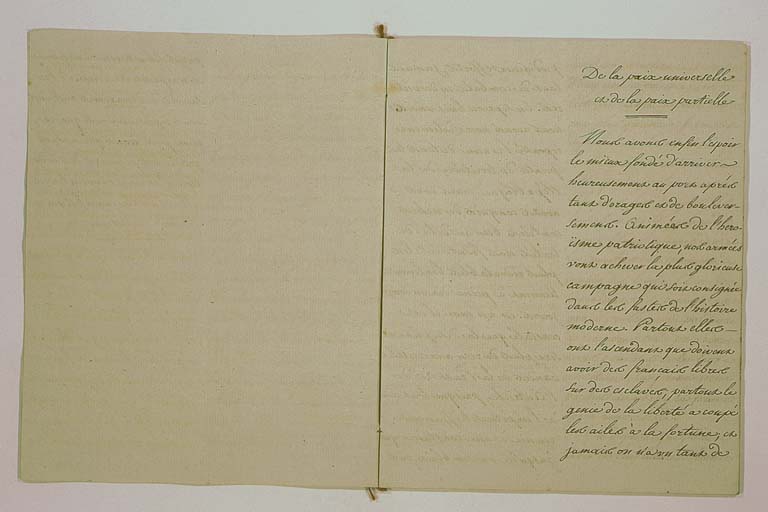 De la paix universelle
et de la paix partielle
Nous avons enfin l'espoir
le mieux fondé d'arriver
heureusement au port après
tant d'orages et de boulever-
semens. Animées de l'hero-
ïsme patriotique, nos armées
vont achever la plus glorieuse
campagne qui soit consignée
dans les fastes de l'histoire
moderne. Partout elles
ont l'ascendant que doivent
avoir des français libres
sur des esclaves; partout le
genie de la liberté a coupé
les ailes à la fortune, et
jamais on n'a vu tant de